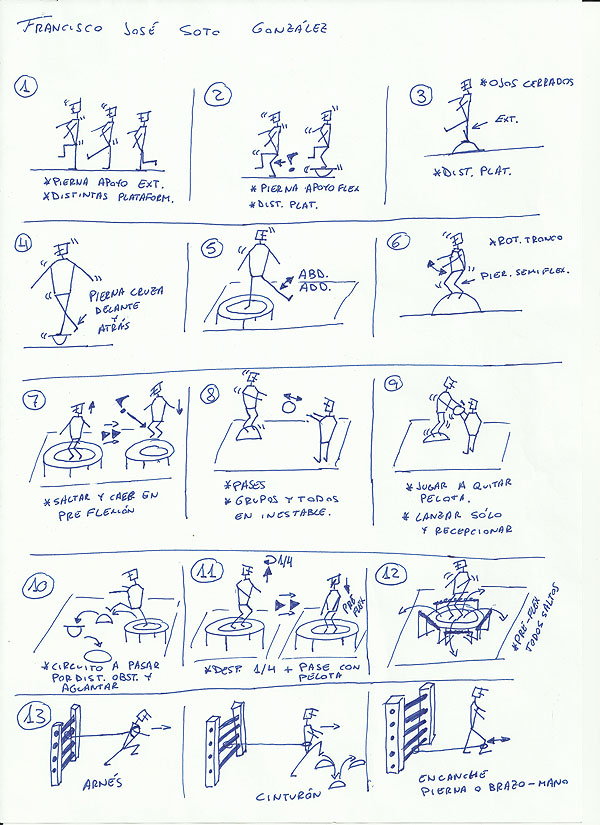 FRANCISCO JOSÉ SOTO GONZÁLEZ
1
*PIERNA APOYO EXT.
*DISTINTAS PLATAFORM.
2
*PIERNA APOYO FLEX
*DIST. PLAT.
3
*OJOS CERRADOS
EXT.
*DIST. PLAT.
4
PIERNA CRUZA
DELANTE
Y
ATRÁS
5
ABD.
ADD.
6
*ROT. TRONCO
PIER. SEMIFLEX.
7
*SALTAR Y CAER EN
PRE FLEXIÓN
8
*PASES
*GRUPOS Y TODOS
EN INESTABLE.
9
*JUGAR A QUITAR
PELOTA.
*LANZAR SÓLO
Y RECEPCIONAR
10
*CIRCUITO A PASAR
POR DIST. OBST. Y
AGUANTAR
11
1/4
PRE
FLEX
*DESP. 1/4 + PASE CON
PELOTA
12
*PRÉ-FLEX
TODOS SALTOS
13
ARNÉS
CINTURÓN
ENGANCHE
PIERNA O BRAZO-MANO